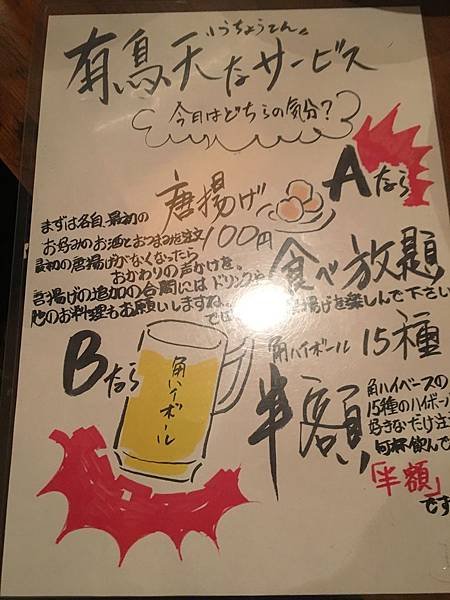 "うちょうてん"
有鳥天なサービス
今日はどちらの気分?
Aなら
唐揚げ
100円
食べ放題
まずは各自、最初の
お好みのお酒とおつまみを注文
最初の唐揚げがなくなったら
おかわりの声かけを。
唐揚げの追加の合間には ドリンクや
他のお料理もお願いしますね。
では
揚げを楽しんで下さい
Bなら
角ハイボール
角ハイボール 15種
半額
角ハイベースの
15種のハイボー
好きなだけ注
何杯飲んで
「半額」
です